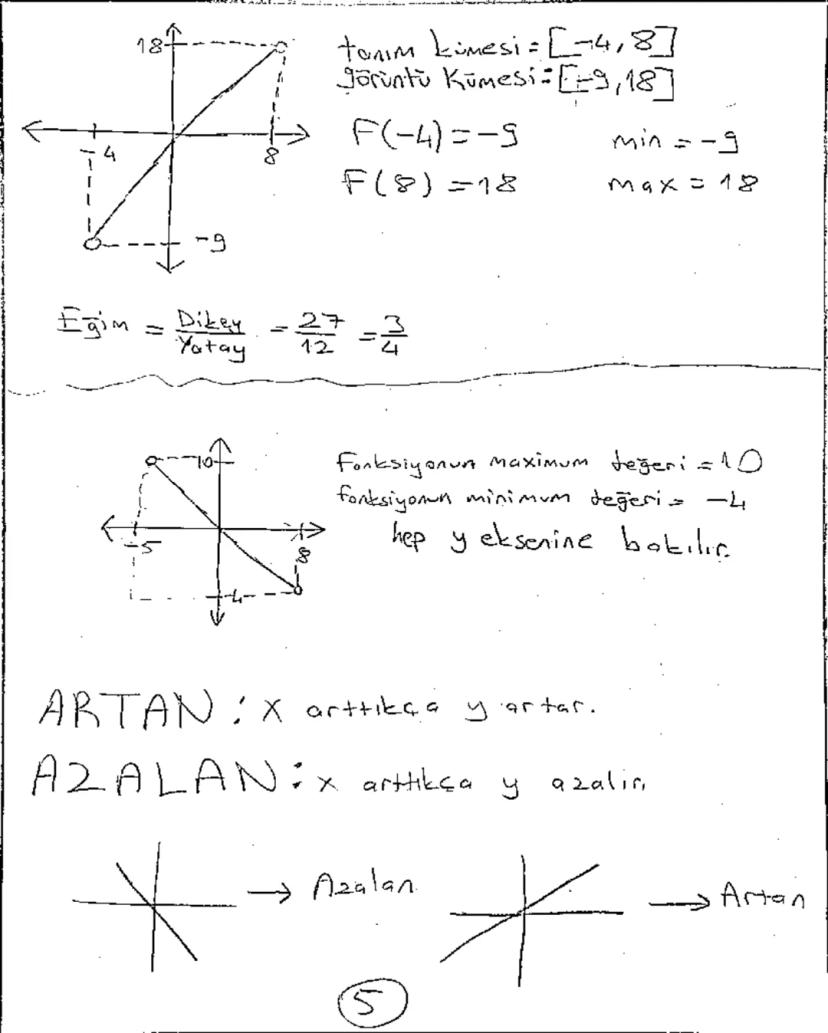 18
-4
8
-9
tanım kümesi = [-4, 8]
görüntü kümesi = [-9, 18]
F(-4) = -9
min = -9
F(8) = 18
max = 18
Eğim = Dikey/Yatay = 27/12 = 3/4
10
-5
8
-4
Fonksiyonun maximum değeri = 10
fonksiyonun minimum değeri = -4
hep y eksenine bakılır.
ARTAN : x arttıkça y artar.
AZALAN : x arttıkça y azalır.
→ Azalan
→ Artan
5